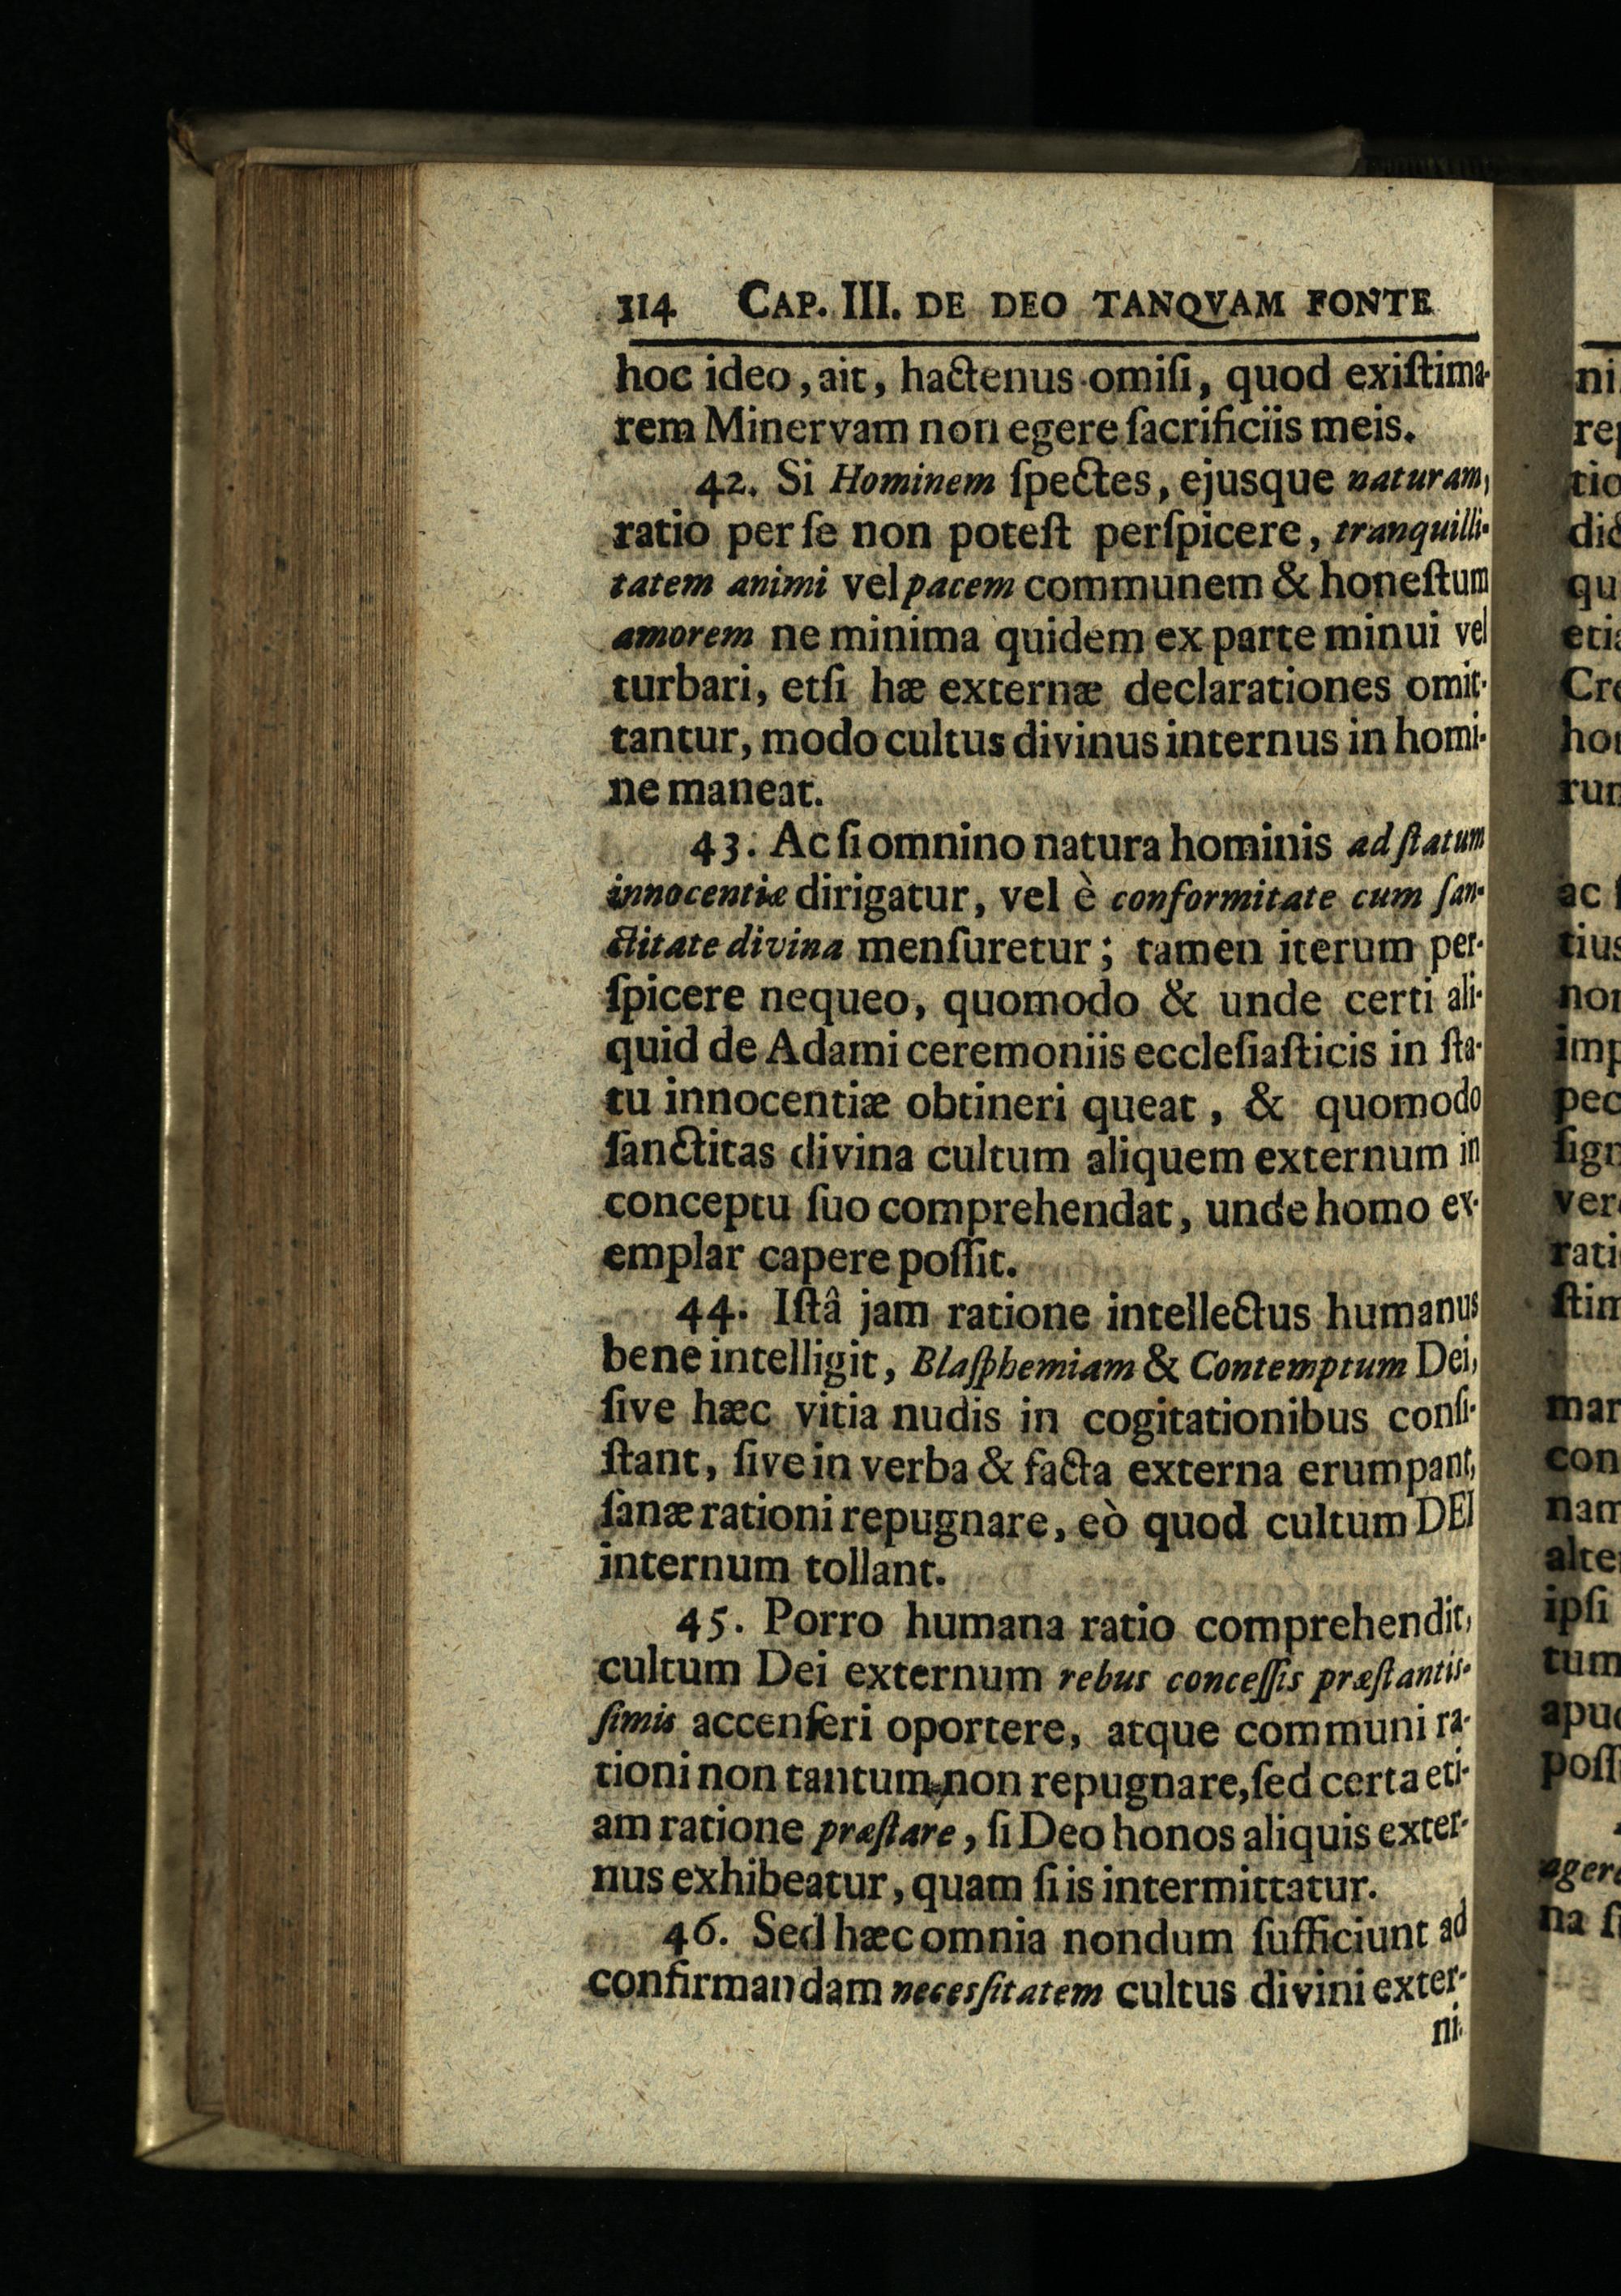 114 CAP. III. DE DEO TANQVAM FONTE
hoc ideo, ait, hactenus omiſi, quod exiſtima-
rem Minervam non egere ſacrificiis meis.
42. Si Hominem ſpectes, ejusque naturam,
ratio per ſe non poteſt perſpicere, tranquilli-
tatem animi vel pacem communem & honeſtum
amorem ne minima quidem ex parte minui vel
turbari, etſi hæ externæ declarationes omit-
tantur, modo cultus divinus internus in homi-
ne maneat.
43. Ac ſi omnino natura hominis ad ſtatum
innocentiæ dirigatur, vel è conformitate cum ſan-
ctitate divina menſuretur; tamen iterum per-
ſpicere nequeo, quomodo & unde certi ali-
quid de Adami ceremoniis eccleſiaſticis in ſta-
tu innocentiæ obtineri queat, & quomodo
ſanctitas divina cultum aliquem externum in
conceptu ſuo comprehendat, unde homo ex-
emplar capere poſſit.
44. Iſtâ jam ratione intellectus humanus
bene intelligit, Blaſphemiam & Contemptum Dei,
ſive hæc vitia nudis in cogitationibus conſi-
ſtant, ſive in verba & facta externa erumpant,
ſanæ rationi repugnare, eò quod cultum DEI
internum tollant.
45. Porro humana ratio comprehendit,
cultum Dei externum rebus conceſſis præſtantis-
ſimis accenſeri oportere, atque communi ra-
tioni non tantum non repugnare, ſed certa eti-
am ratione præſtare, ſi Deo honos aliquis exter-
nus exhibeatur, quam ſi is intermittatur.
46. Sed hæc omnia nondum ſufficiunt ad
confirmandam necesſitatem cultus divini exter-
ni-